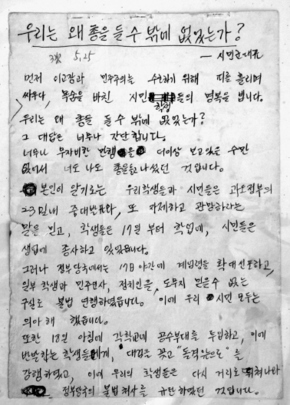 우리는 왜 총을 들 수 밖에 없었는가?
5.25 — 시민군 대표
먼저 이 고장과 민주주의를 수호하기 위해 피를 흘리며
싸우다 목숨을 바친 시민 학생들의 명복을 빕니다.
우리는 왜 총을 들 수 밖에 없었는가?
그 대답은 너무나 간단합니다.
너무나 무자비한 만행을 더 이상 보고 있을 수만
없어서 너도 나도 총을 들고 나섰던 것입니다.
본인이 알기로는 우리 학생들과 시민들은 과도정부의
중대발표와, 또 자제하고 관망하라는
말을 듣고, 학생들은 17일부터 학업에, 시민들은
생업에 종사하고 있었습니다.
그러나 정부 당국에서는 17日 야간에 계엄령을 확대 선포하고,
일부 학생과 민주인사, 정치인을, 도무지 믿을 수 없는
구실로 불법 연행했습니다. 이에 우리 시민 모두는
의아해 했습니다.
또한 18일 아침에 각 학교에 공수부대를 투입하고, 이에
반발하는 학생들에게, 대검을 꽂고 "돌격 앞으로"을
감행하였고, 이에 우리의 학생들은 다시 거리로 뛰쳐나와
정부당국의 불법처사를 규탄하였던 것입니다.